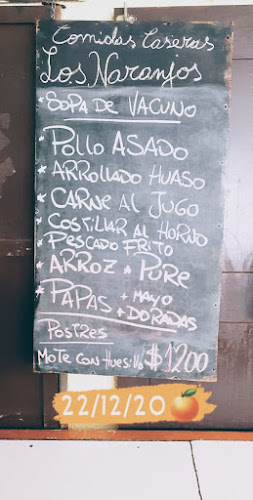 Comidas Caseras
Los Naranjos
* SOPA DE VACUNO
* POllO ASADO
* ARROllADO HUASO
* CARNE Al JUGO
COSTIllAR Al HORNO
* PESCADO FRITO
* ARROZ * PURE
* PAPAS + MAYO
+ DORADAS
POSTRES
MOTE CON HUESIllO $1200
22/12/20